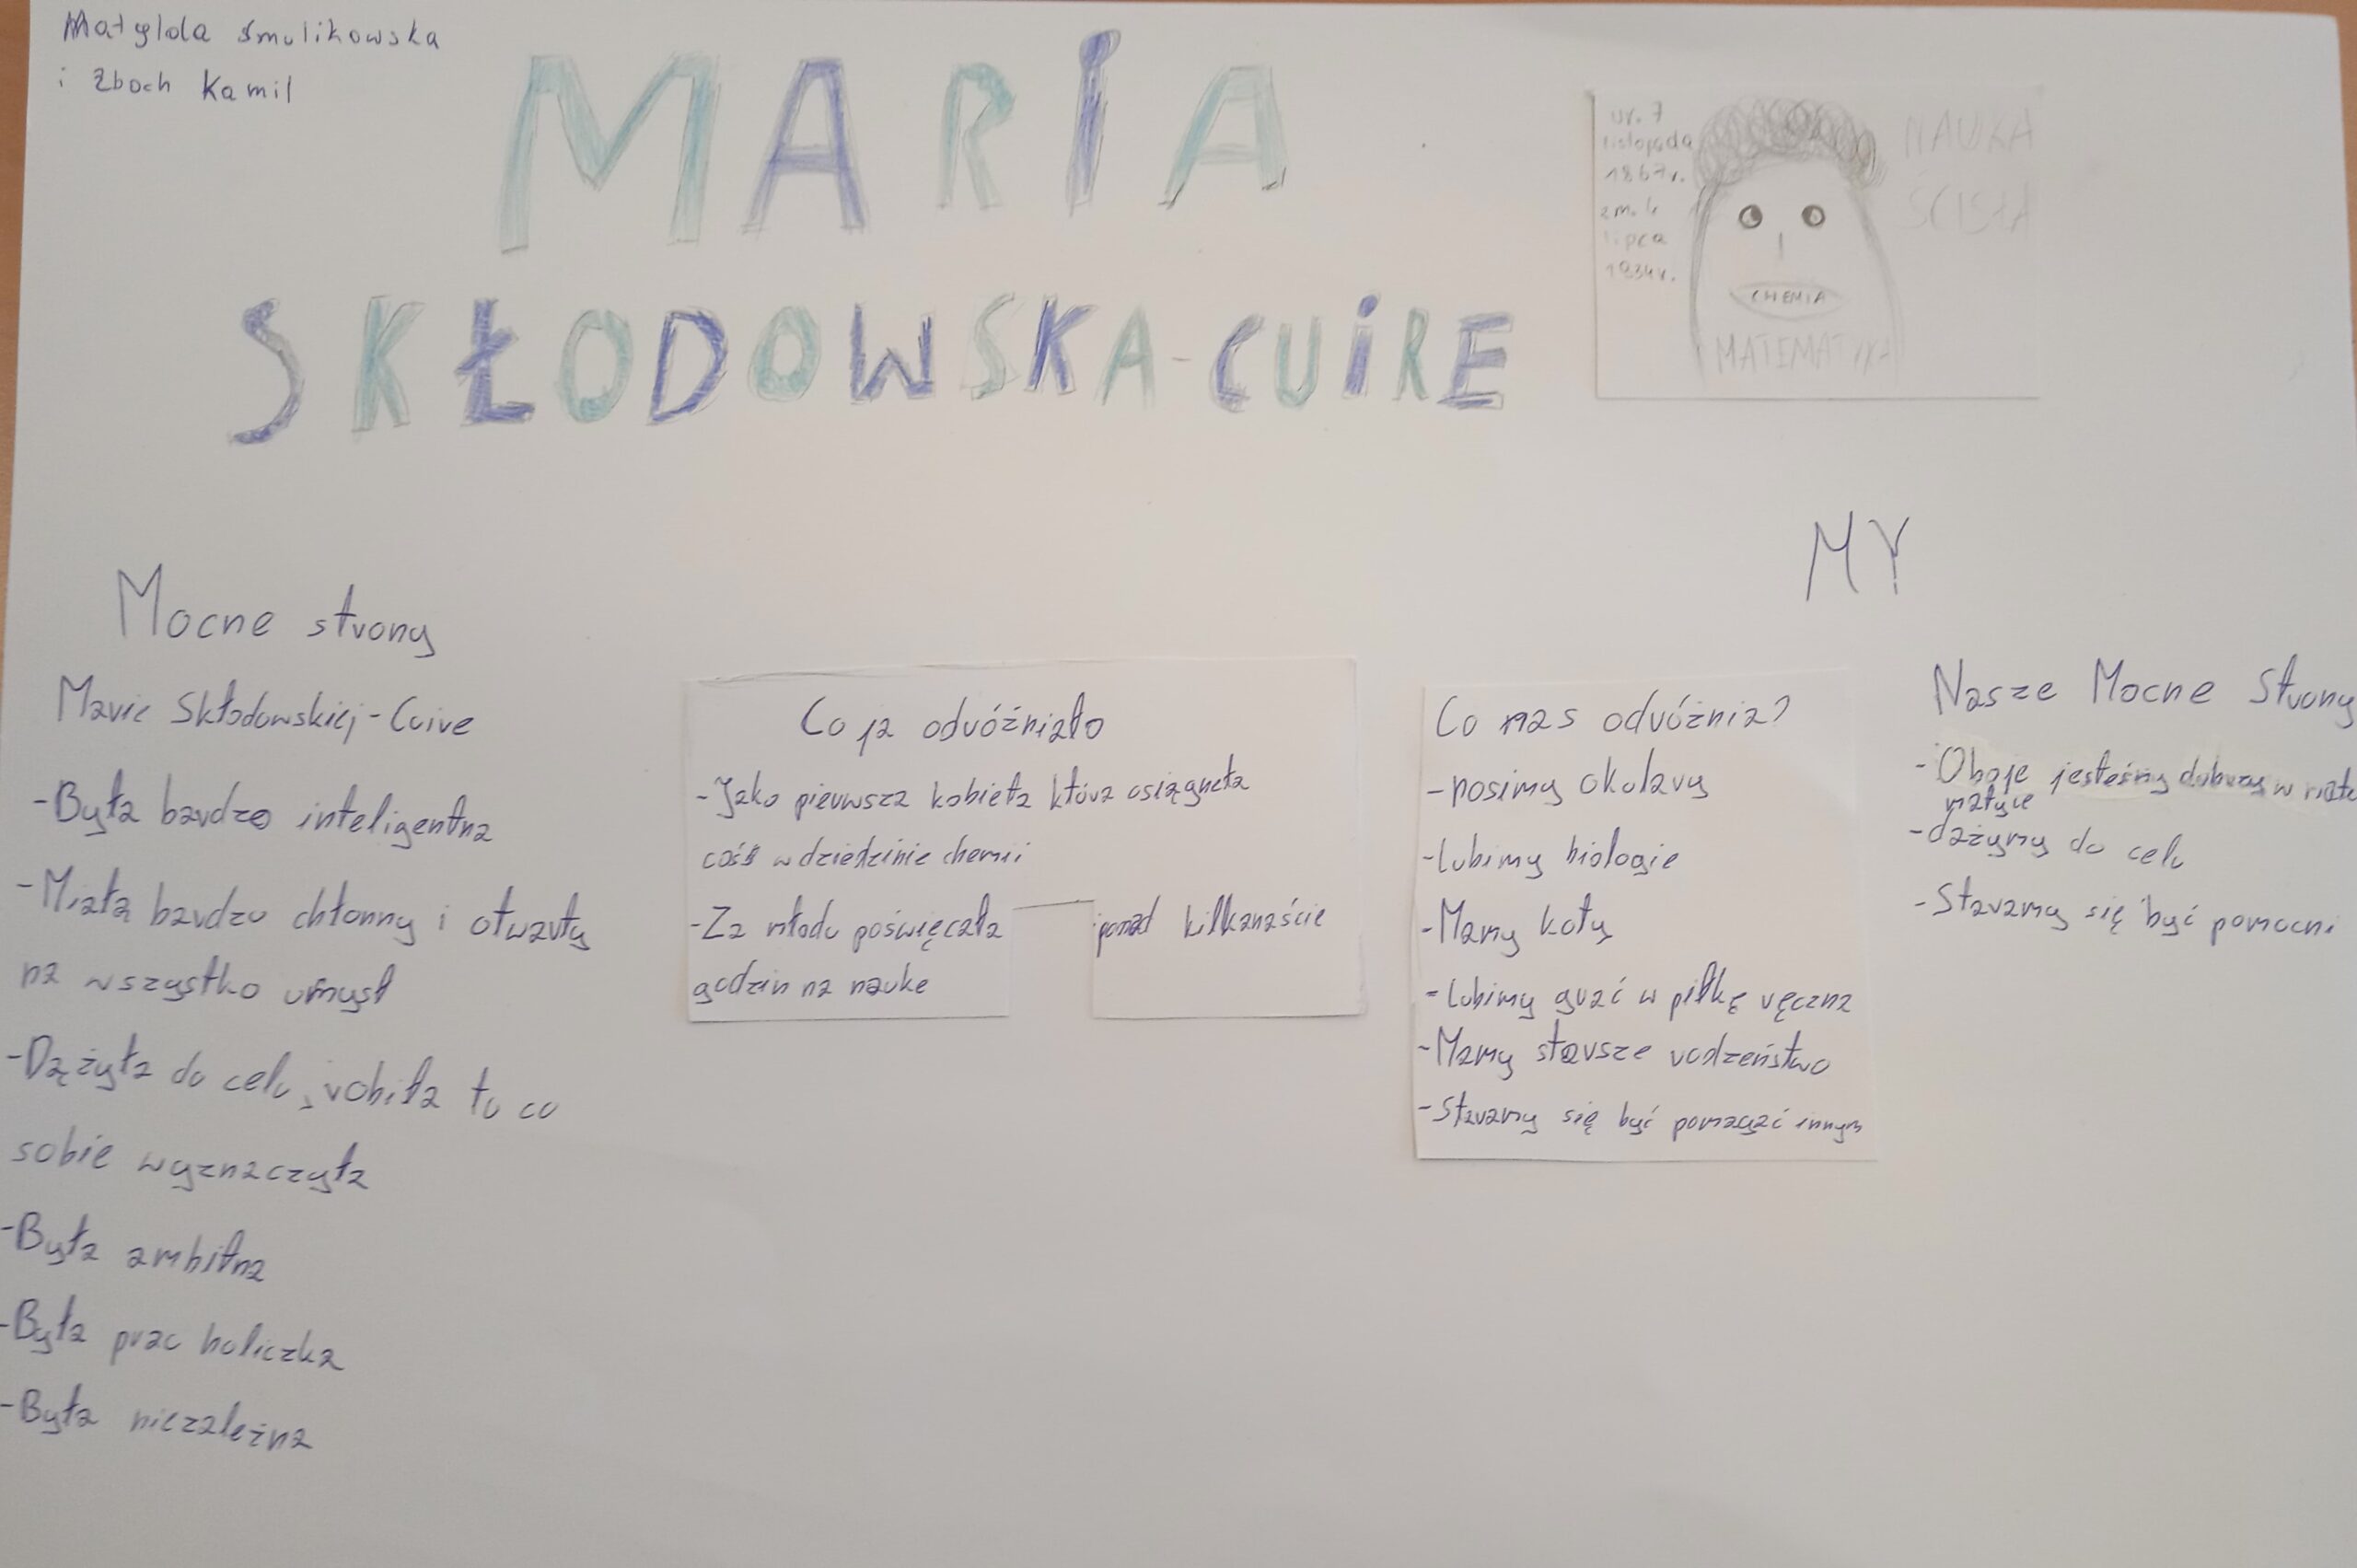 Matylda Smulikowska
i Zboch Kamil
MARIA
SKŁODOWSKA-CUIRE
ur. 7
listopada
1867r.
zm. 4
lipca
1934r.
NAUKA
ŚCISŁA
CHEMIA
MATEMATYKA
Mocne strony
Marie Skłodowskiej-Cuire
-Była bardzo inteligentna
-Miała bardzo chłonny i otwarty
na wszystko umysł
-Dążyła do celu, robiła to co
sobie wyznaczyła
-Była ambitna
-Była prac holiczka
-Była niezależna
Co ja odróżniało
-Jako pierwsza kobieta która osiągneła
coś w dziedzinie chemii
-Za młodu poświęcała ponad kilkanaście
godzin na nauke
MY
Co nas odróżnia?
-nosimy okulary
-lubimy biologie
-Mamy koty
-lubimy grać w piłkę ręczna
-Mamy starsze rodzeństwo
-Staramy się być pomagać innym
Nasze Mocne Strony
-Oboje jesteśmy dobrzy w mate
matyce
-dążymy do celu
-Staramy się być pomocni